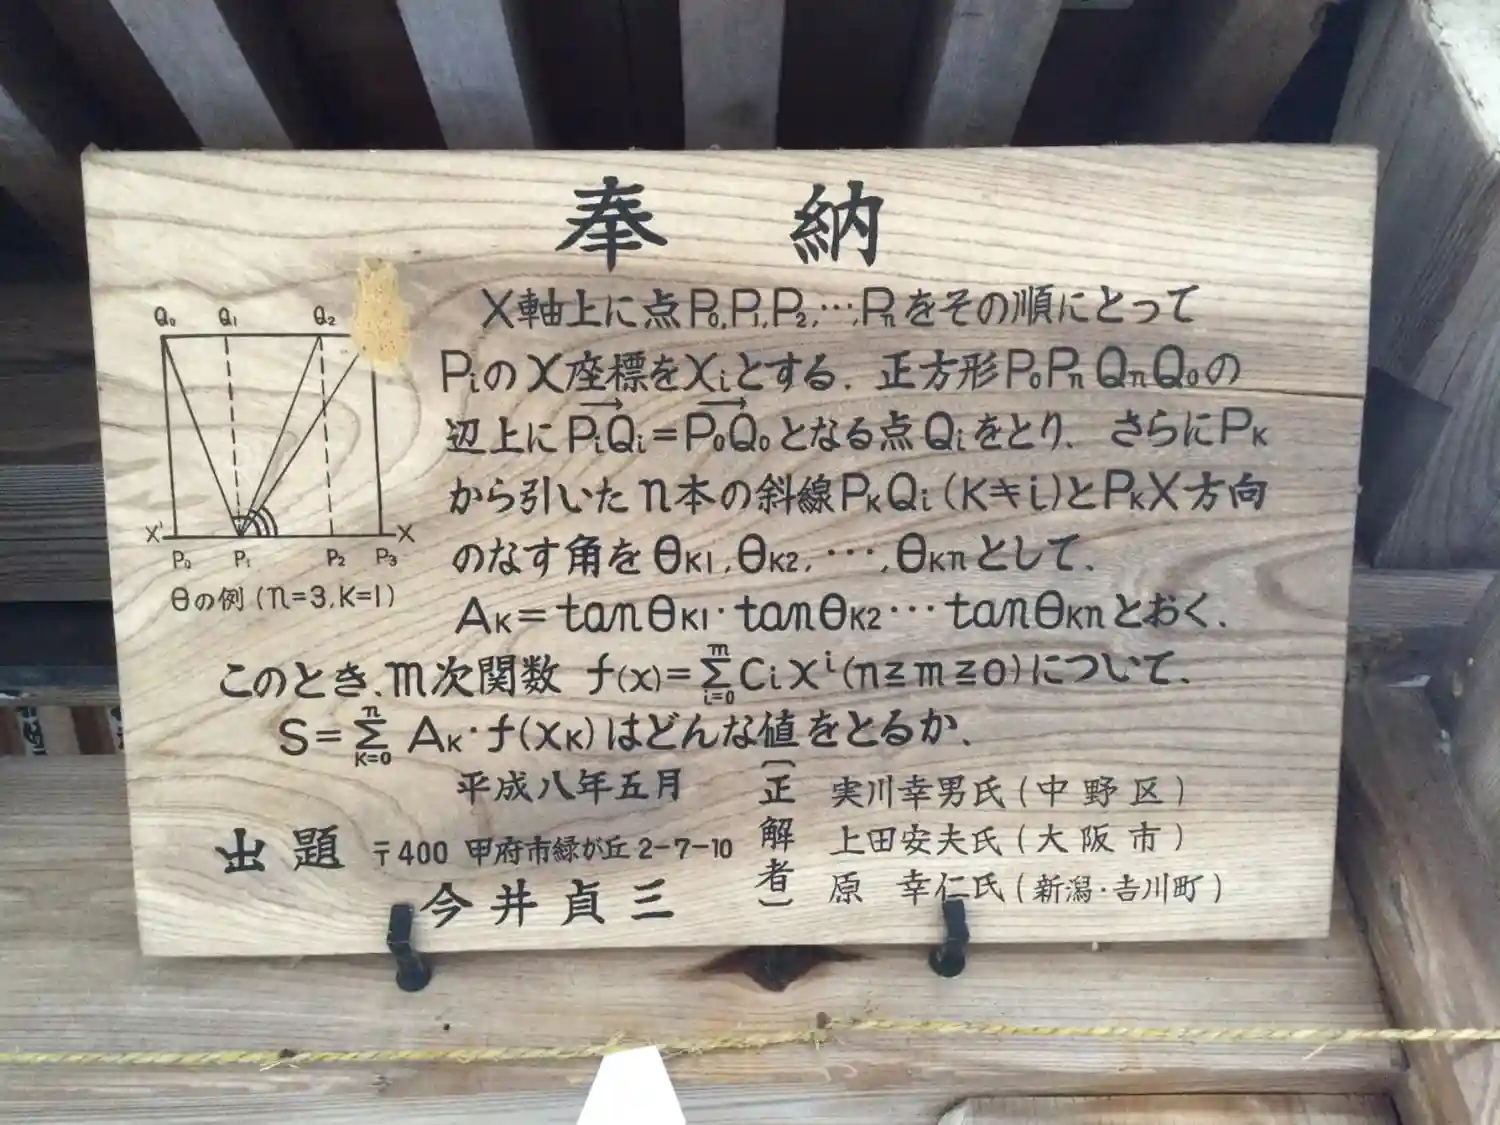 奉納
X軸上に点P₀,P₁,P₂,…,Pₙをその順にとって
PᵢのX座標をXᵢとする. 正方形P₀PₙQₙQ₀の
辺上にPᵢQᵢ=P₀Q₀となる点Qᵢをとり. さらにPK
から引いたn本の斜線PKQi(K≠i)とPKX方向
のなす角をθK1,θK2,…,θKnとして.
AK=tanθK1·tanθK2…tanθKnとおく.
このとき.m次関数 f(x)=Σ[i=0→m]CiXⁱ(n≧m≧0)について.
S=Σ[K=0→n]AK·f(XK)はどんな値をとるか.
Q₀ Q₁ Q₂
X' X
P₀ P₁ P₂ P₃
θの例(n=3,K=1)
平成八年五月
出題 〒400 甲府市緑が丘2-7-10
今井貞三
(正解者)
実川幸男氏(中野区)
上田安夫氏(大阪市)
原 幸仁氏(新潟·吉川町)